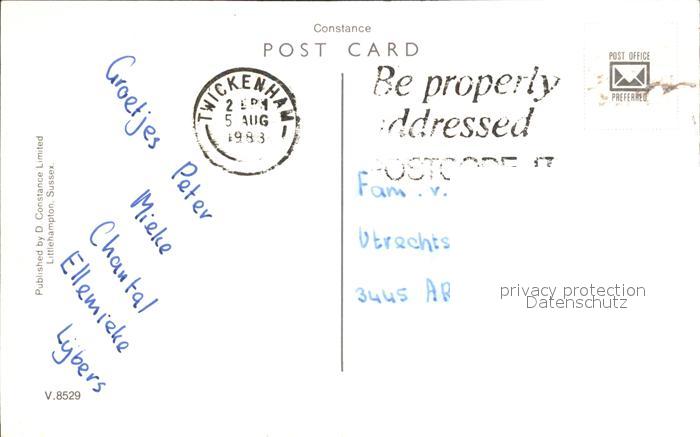 Constance
POST CARD
Groetjes Peter
Mieke
Chantal
Ellemieke
Lijbers
TWICKENHAM
5 AUG
Be properly
addressed
POSTCODE IT
POST OFFICE
PREFERRED
Fam. v.
Utrechts
3445 AR
privacy protection
Datenschutz
Published by D. Constance Limited
Littlehampton, Sussex.
V.8529